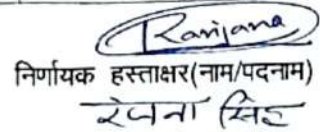 Ranjana
निर्णायक हस्ताक्षर(नाम/पदनाम)
रंजना सिंह